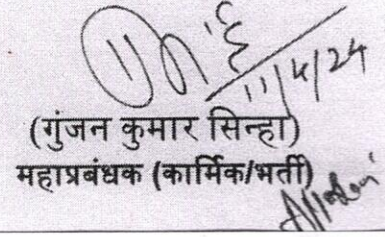 11/4/24
(गुंजन कुमार सिन्हा)
महाप्रबंधक (कार्मिक/भर्ती)